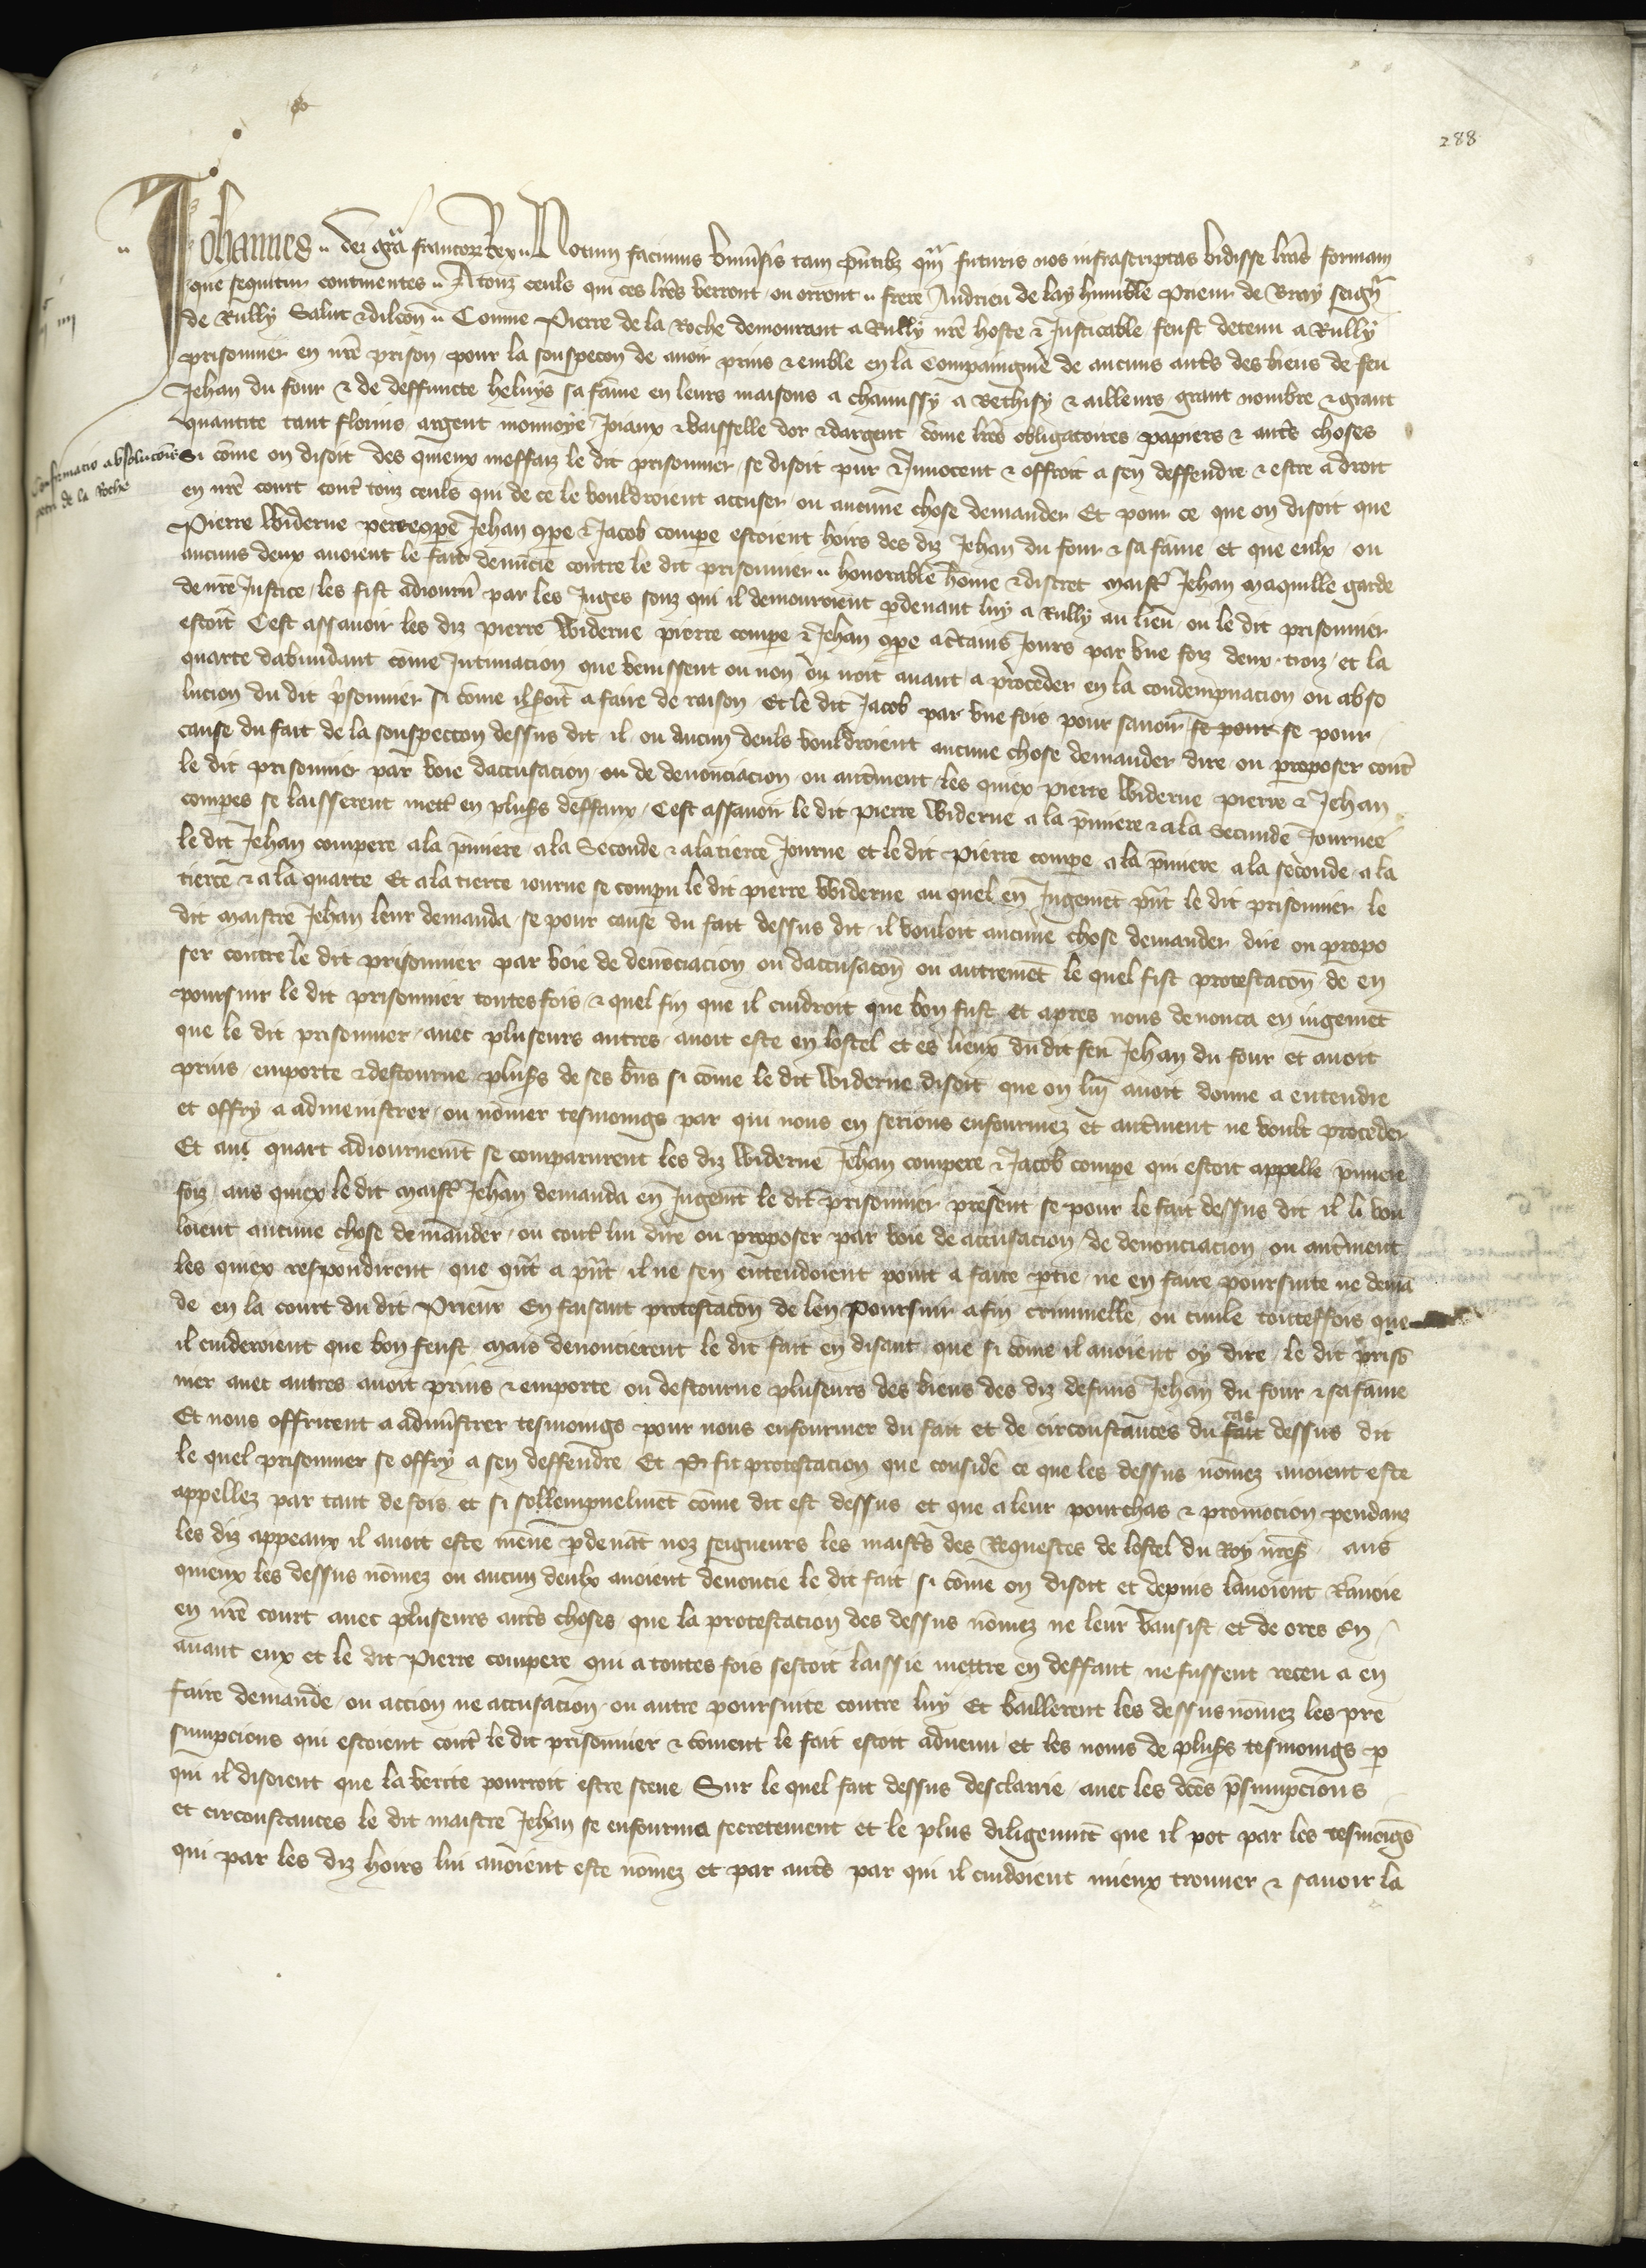 288
Johannes dei gra francorz Rex Notum facimus univsis tam pntibz qm futuris nos infrascriptas vidisse lras formam
que sequitur continentes Atouz ceuls qui ces lres verront ou orront frere Andrieu de lay humble Prieur de Bray seignr
de Rully Salut & dilcon Comme Pierre de la Roche demourant a Rully nre hoste & Justicable feust detenu a Rully
prisonnier en nre prison pour la souspecon de avoir prins & emble en la Compaingnie de aucuns auts des biens de feu
Jehan du four & de deffuncte heluys sa fame en leurs maisons a chamissy a Bethisy & ailleurs grant nombre & grant
quantite tant florins argent monnoye Joiaux & vaisselle dor & dargent come lres obligatoires papiers & auts choses
Si come on disoit des quieux meffaiz le dit prisonnier se disoit pur & Innocent & offroit a sen deffendre & estre a droit
Confirmacio absolucois
petri de la Roche
en nre court cont touz ceuls qui de ce le vouldroient accuser ou aucune chose demander Et pour ce que on disoit que
Pierre Widerue pierre compe Jehan compe & Jacob compe estoient hoirs des diz Jehan du four & sa fame et que eulx ou
aucuns deux avoient le fait denuncie contre le dit prisonnier honorable home & discret maist Jehan maquille garde
de nre Justice les fist adiourn par les Juges souz qui il demouroient pdevant luy a Rully au lieu ou le dit prisonnier
estoit Cest assavoir les diz pierre Widerue pierre compe & Jehan compe a ctains Jours par une foiz deux troiz et la
quarte dabundant come Intimacion que venissent ou non on iroit avant a proceder en la condempnacion ou abso
lucion du dit psonnier si come il seroit a faire de raison Et le dit Jacob par une fois pour savoir se pour se pour
cause du fait de la souspeccon dessus dit il ou aucun deuls vouldroient aucune chose demander dire ou proposer cont
le dit prisonnier par voie daccusacion ou de denonciacion ou autment les quiex pierre Widerue pierre & Jehan
compes se laisserent mett en plusrs deffaux Cest assavoir le dit pierre Widerue a la pmiere & a la Secunde Journee
le dit Jehan compere a la pmiere a la Seconde & a la tierce Journe et le dit pierre compe a la pmiere a la seconde a la
tierce & a la quarte Et a la tierce iourne se compu le dit pierre Widerue au quel en Jugemet pnt le dit prisonnier le
dit maistre Jehan leur demanda se pour cause du fait dessus dit il vouloit aucune chose demander dire ou propo
ser contre le dit prisonnier par voie de denonciacion ou daccusacon ou autremet le quel fist protestacon de en
poursuir le dit prisonnier toutesfois & quel fin que il cuidroit que bon fust et apres nous denonca en iugemet
que le dit prisonnier avec pluseurs autres avoit este en lostel et es lieux du dit feu Jehan du four et avoit
prins emporte & destourne plusrs de ses bns si come le dit Widerue disoit que on luy avoit donne a entendre
et offry a admenistrer ou nomer tesmoings par qui nous en serions enfourmez et autment ne voult proceder
Et au quart adiournemt se comparurent les diz Widerue Jehan compere & Jacob compe qui estoit appelle pmiere
foiz aus quiex le dit maist Jehan demanda en Jugemt le dit prisonnier present se pour le fait dessus dit il li vou
loient aucune chose demander ou cont lui dire ou proposer par voie de accusacion de denonciacion ou autment
les quiex respondirent que qnt a pnt il ne sen entendoient point a faire ptie ne en faire poursuite ne dema
de en la court du dit Prieur En faisant protestacon de len poursuir a fin criminelle ou civile toutesfois que
il cuideroient que bon feust mais denoncierent le dit fait en disant que si come il avoient oy dire le dit priso
nier avec autres avoit prins & emporte ou destourne pluseurs des biens des diz defuns Jehan du four & sa fame
Et nous offrirent a adminstrer tesmoings pour nous enfourmer du fait et de circonstances du fait cas dessus dit
le quel prisonnier se offry a sen deffendre Et si fit protestacion que conside ce que les dessus nomez avoient este
appellez par tant de fois et si sollempnelmet come dit est dessus et que a leur pourchas & promocion pendanz
les diz appeaux il avoit este mene pdevat noz seigneurs les maists des Requestes de lostel du Roy nres aus
quieux les dessus nomez ou aucun deulx avoient denoncie le dit fait si come on disoit et depuis lavoient Renvoie
en nre court avec pluseurs auts choses que la protestacion des dessus nomez ne leur vausist et de ores En
avant eux et le dit Pierre compere qui a toutes fois sestoit laissie mettre en deffaut ne fussent receu a en
faire demande ou accion ne accusacion ou autre poursuite contre luy Et baillerent les dessus nomez les pre
sumpcions qui estoient cont le dit prisonnier & coment le fait estoit advenu et les noms de plusrs tesmoings p
qui il disoient que la verite pourroit estre sceue Sur le quel fait dessus desclarie avec les dces psumpcions
et circonstances le dit maistre Jehan se enfourma secretement et le plus diligemt que il pot par les tesmoigs
qui par les diz hoirs lui avoient este nomez et par auts par qui il cuidoient mieux trouver & savoir la